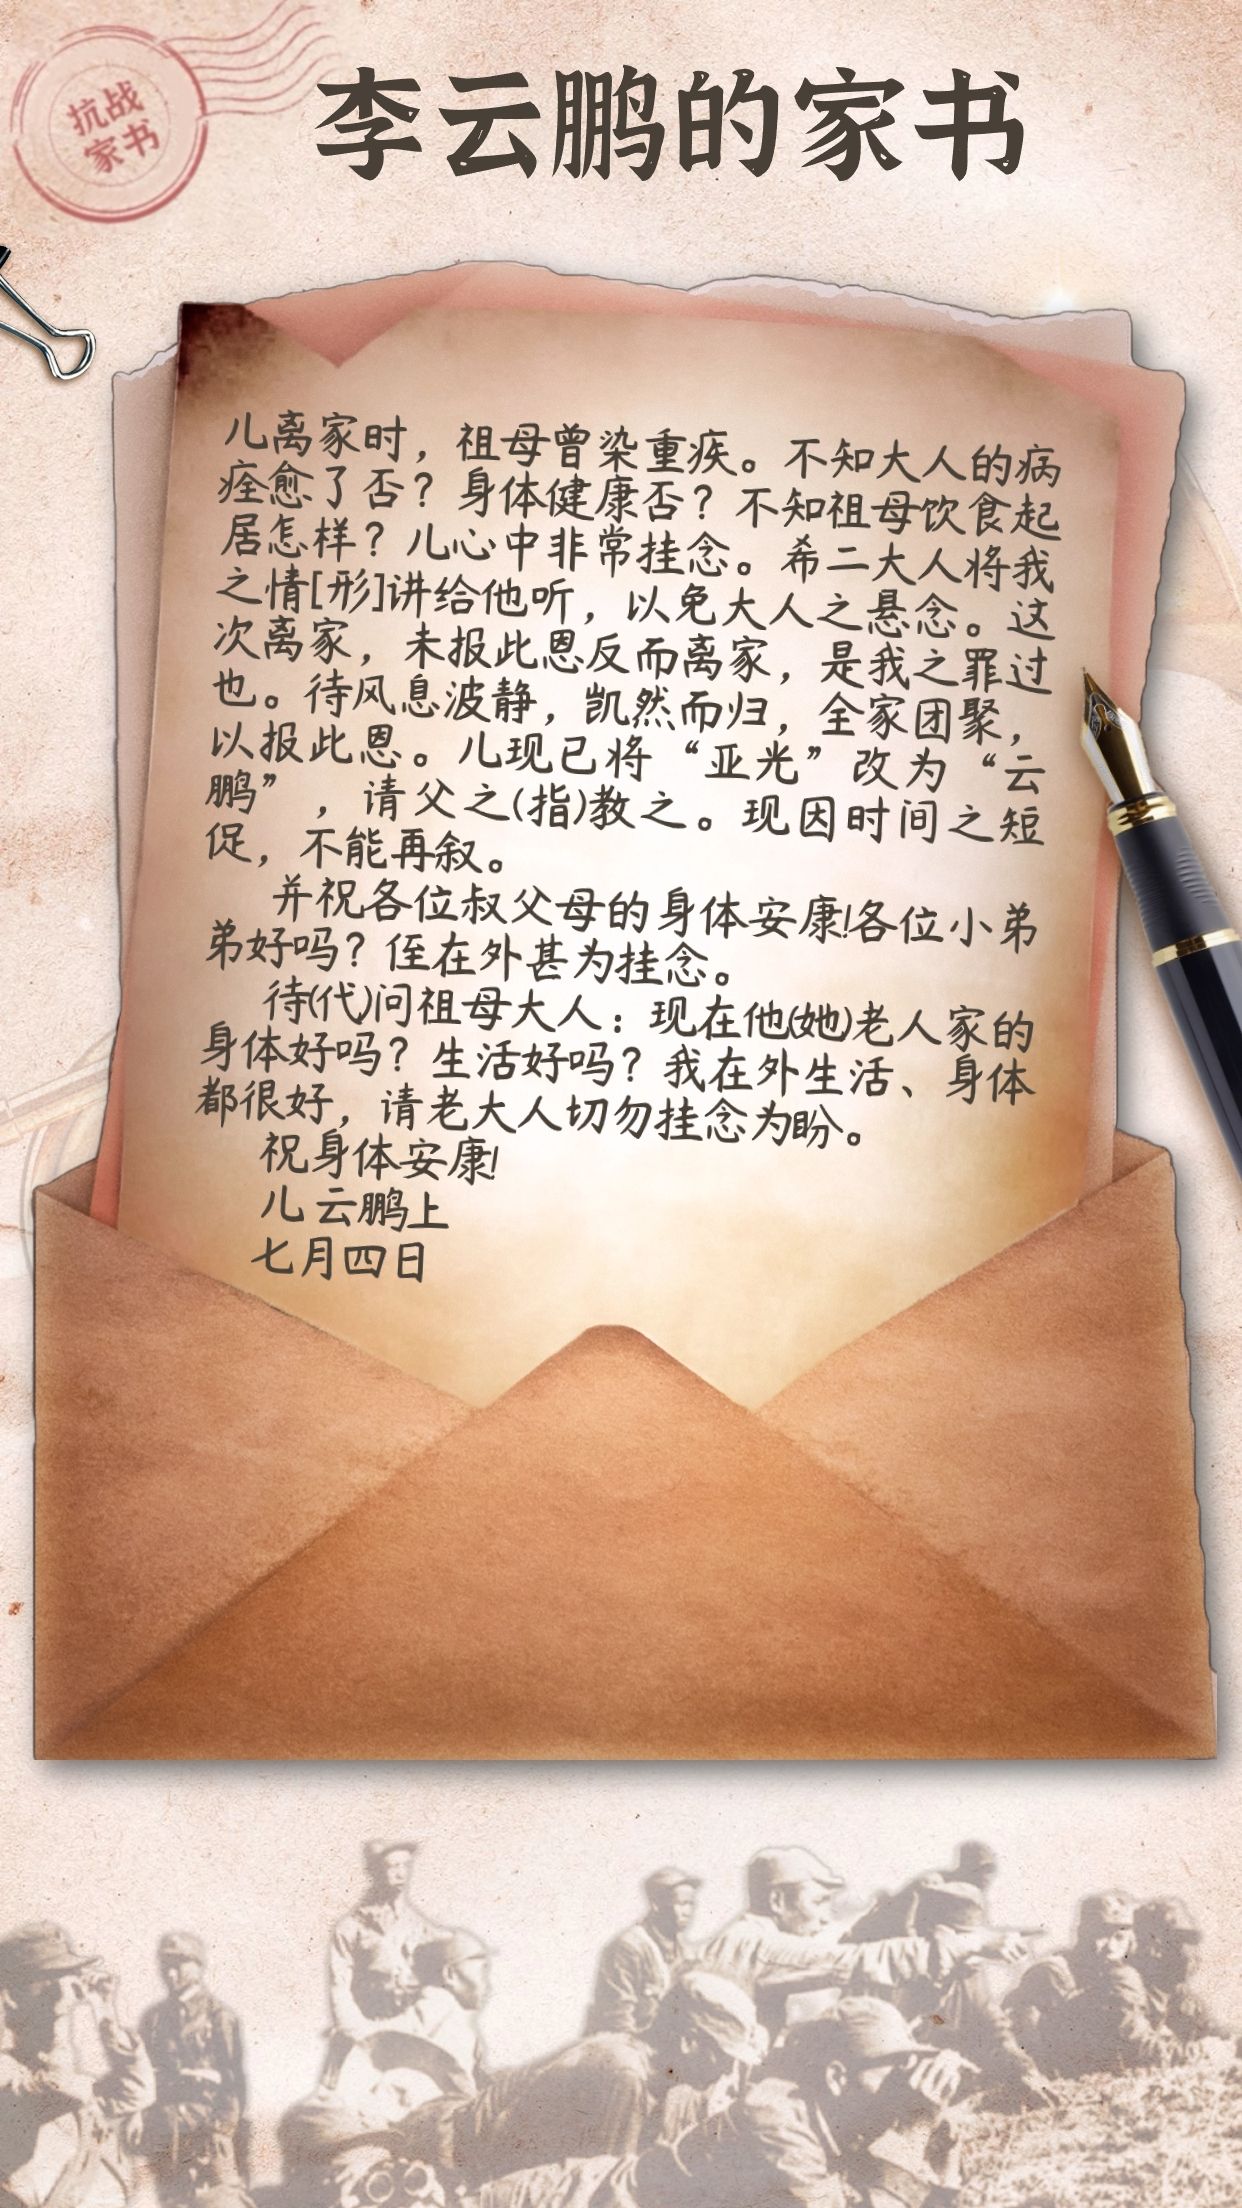 抗战
家书
李云鹏的家书
儿离家时，祖母曾染重疾。不知大人的病
痊愈了否？身体健康否？不知祖母饮食起
居怎样？儿心中非常挂念。希二大人将我
之情[形]讲给他听，以免大人之悬念。这
次离家，未报此恩反而离家，是我之罪过
也。待风息波静，凯然而归，全家团聚，
以报此恩。儿现已将“亚光”改为“云
鹏”，请父之(指)教之。现因时间之短
促，不能再叙。
并祝各位叔父母的身体安康!各位小弟
弟好吗？侄在外甚为挂念。
待(代)问祖母大人：现在他(她)老人家的
身体好吗？生活好吗？我在外生活、身体
都很好，请老大人切勿挂念为盼。
祝身体安康!
儿 云鹏上
七月四日